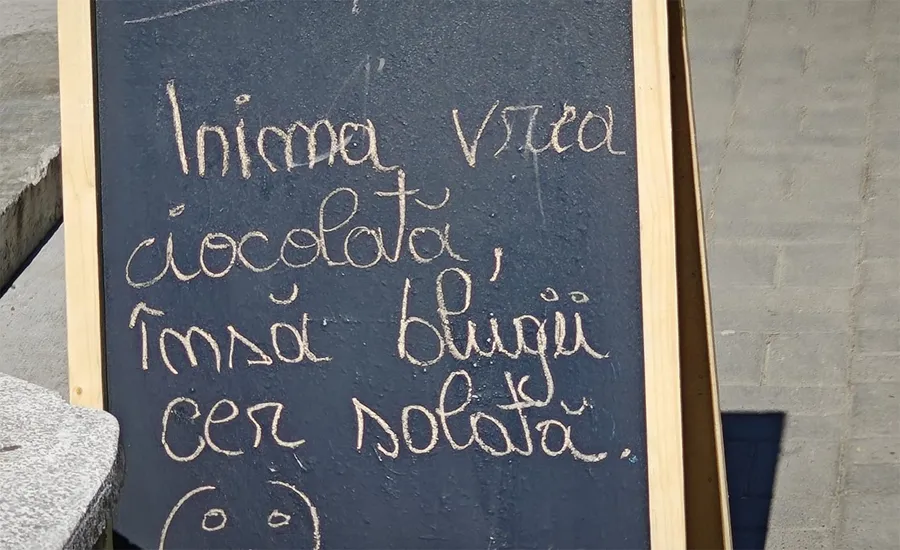 Inima vrea
ciocolată,
însă blugii
cer salată.